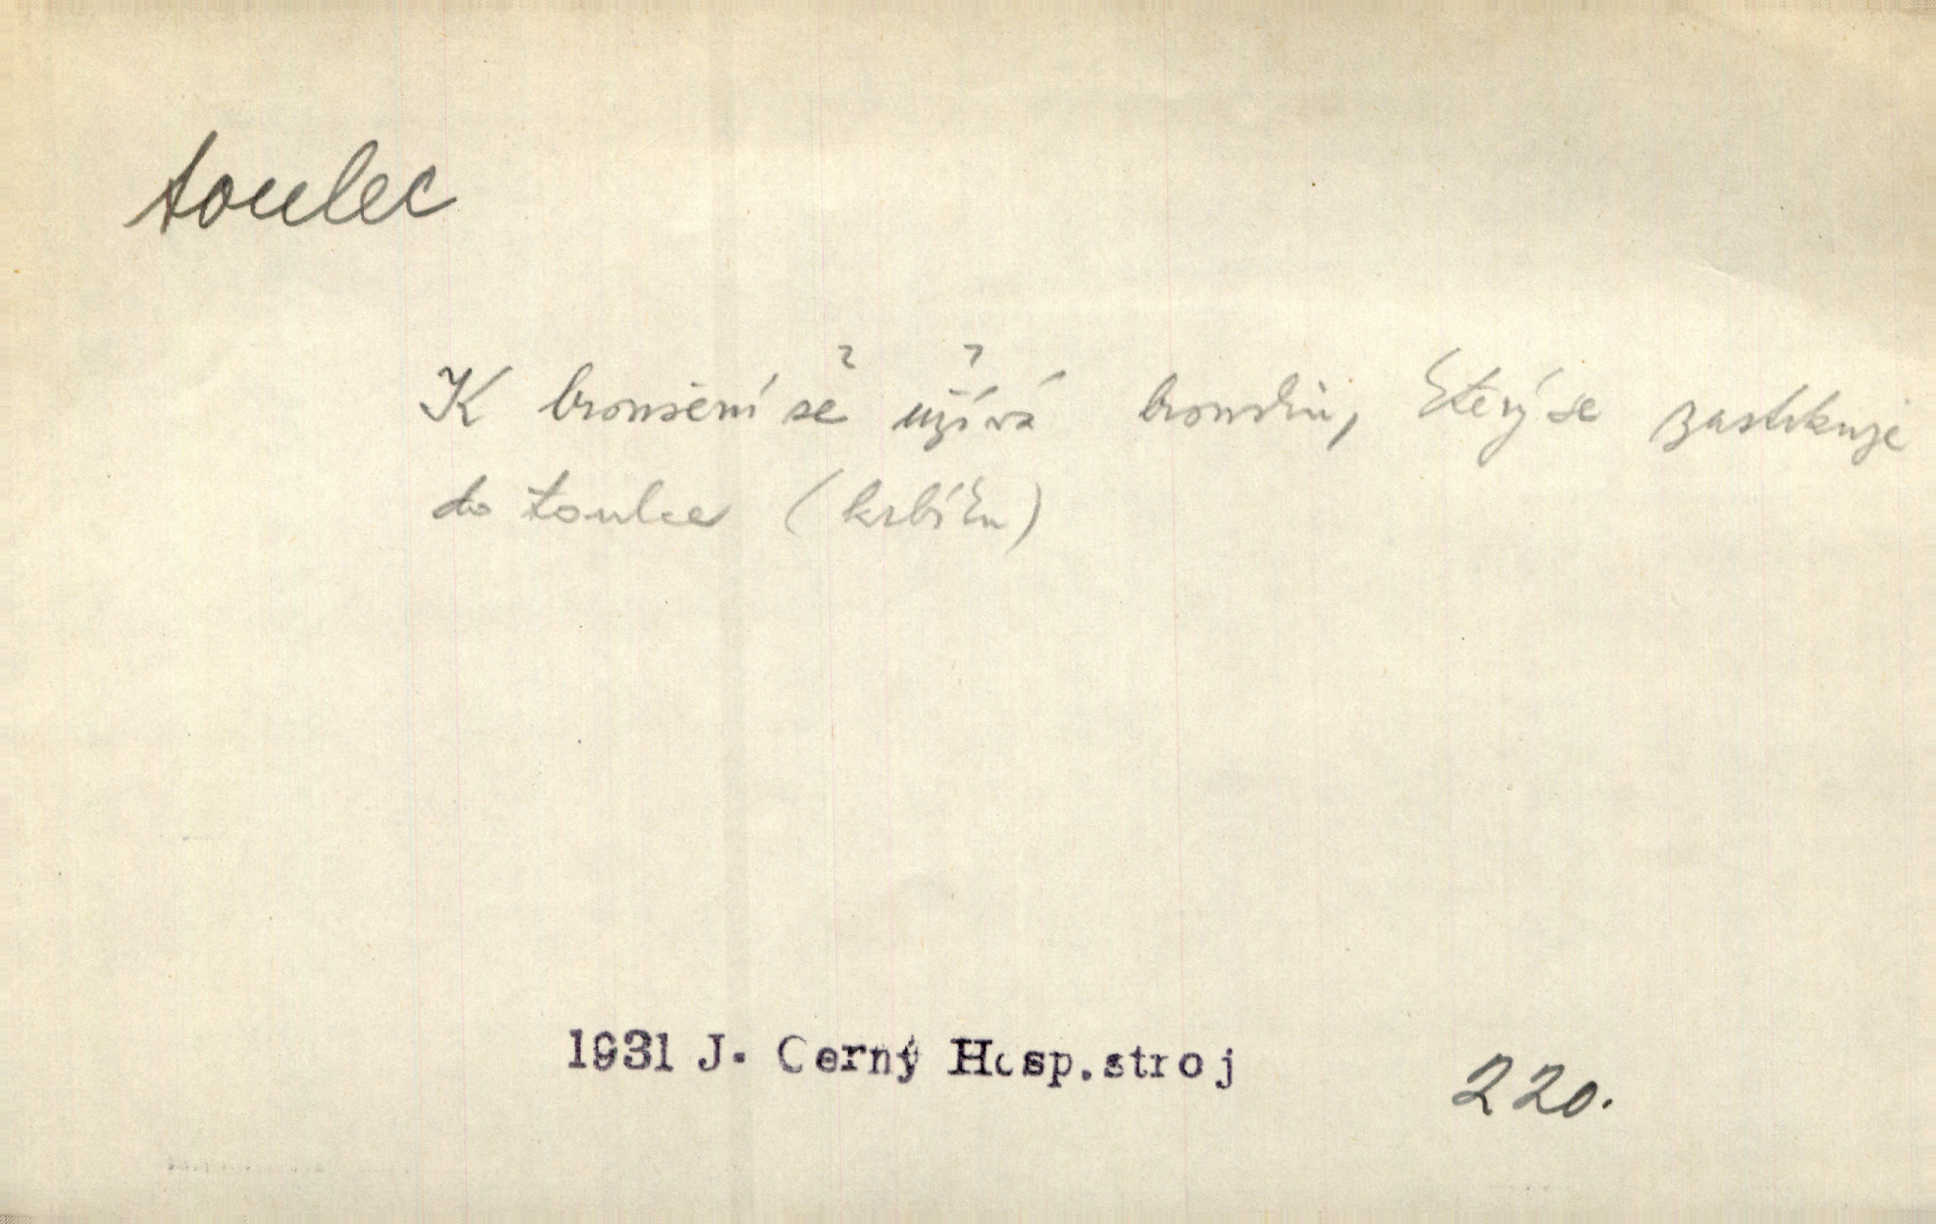 toulec
K broušení se užívá brousku, který se zastrkuje
do toulce (krbíku)
1931 J. Cerný Hosp.stroj
220.